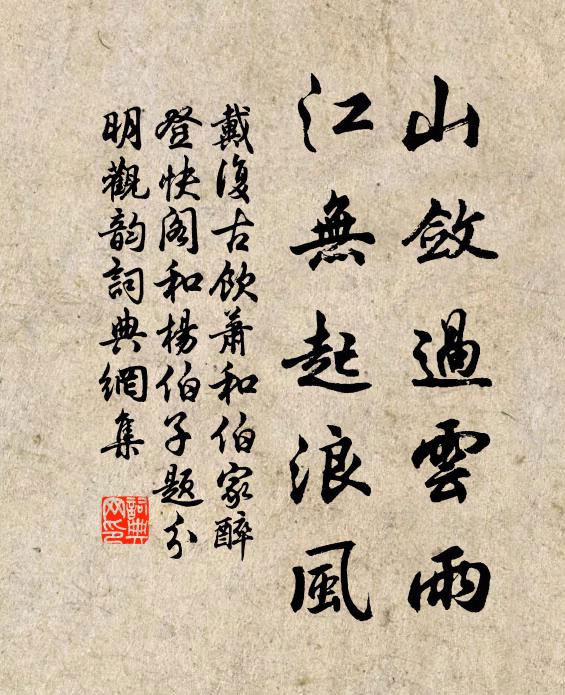 山斂過雲雨
江無起浪風
戴復古飲蕭和伯家醉
登快閣和楊伯子題分
明觀韵詞典網集
詞典
网印